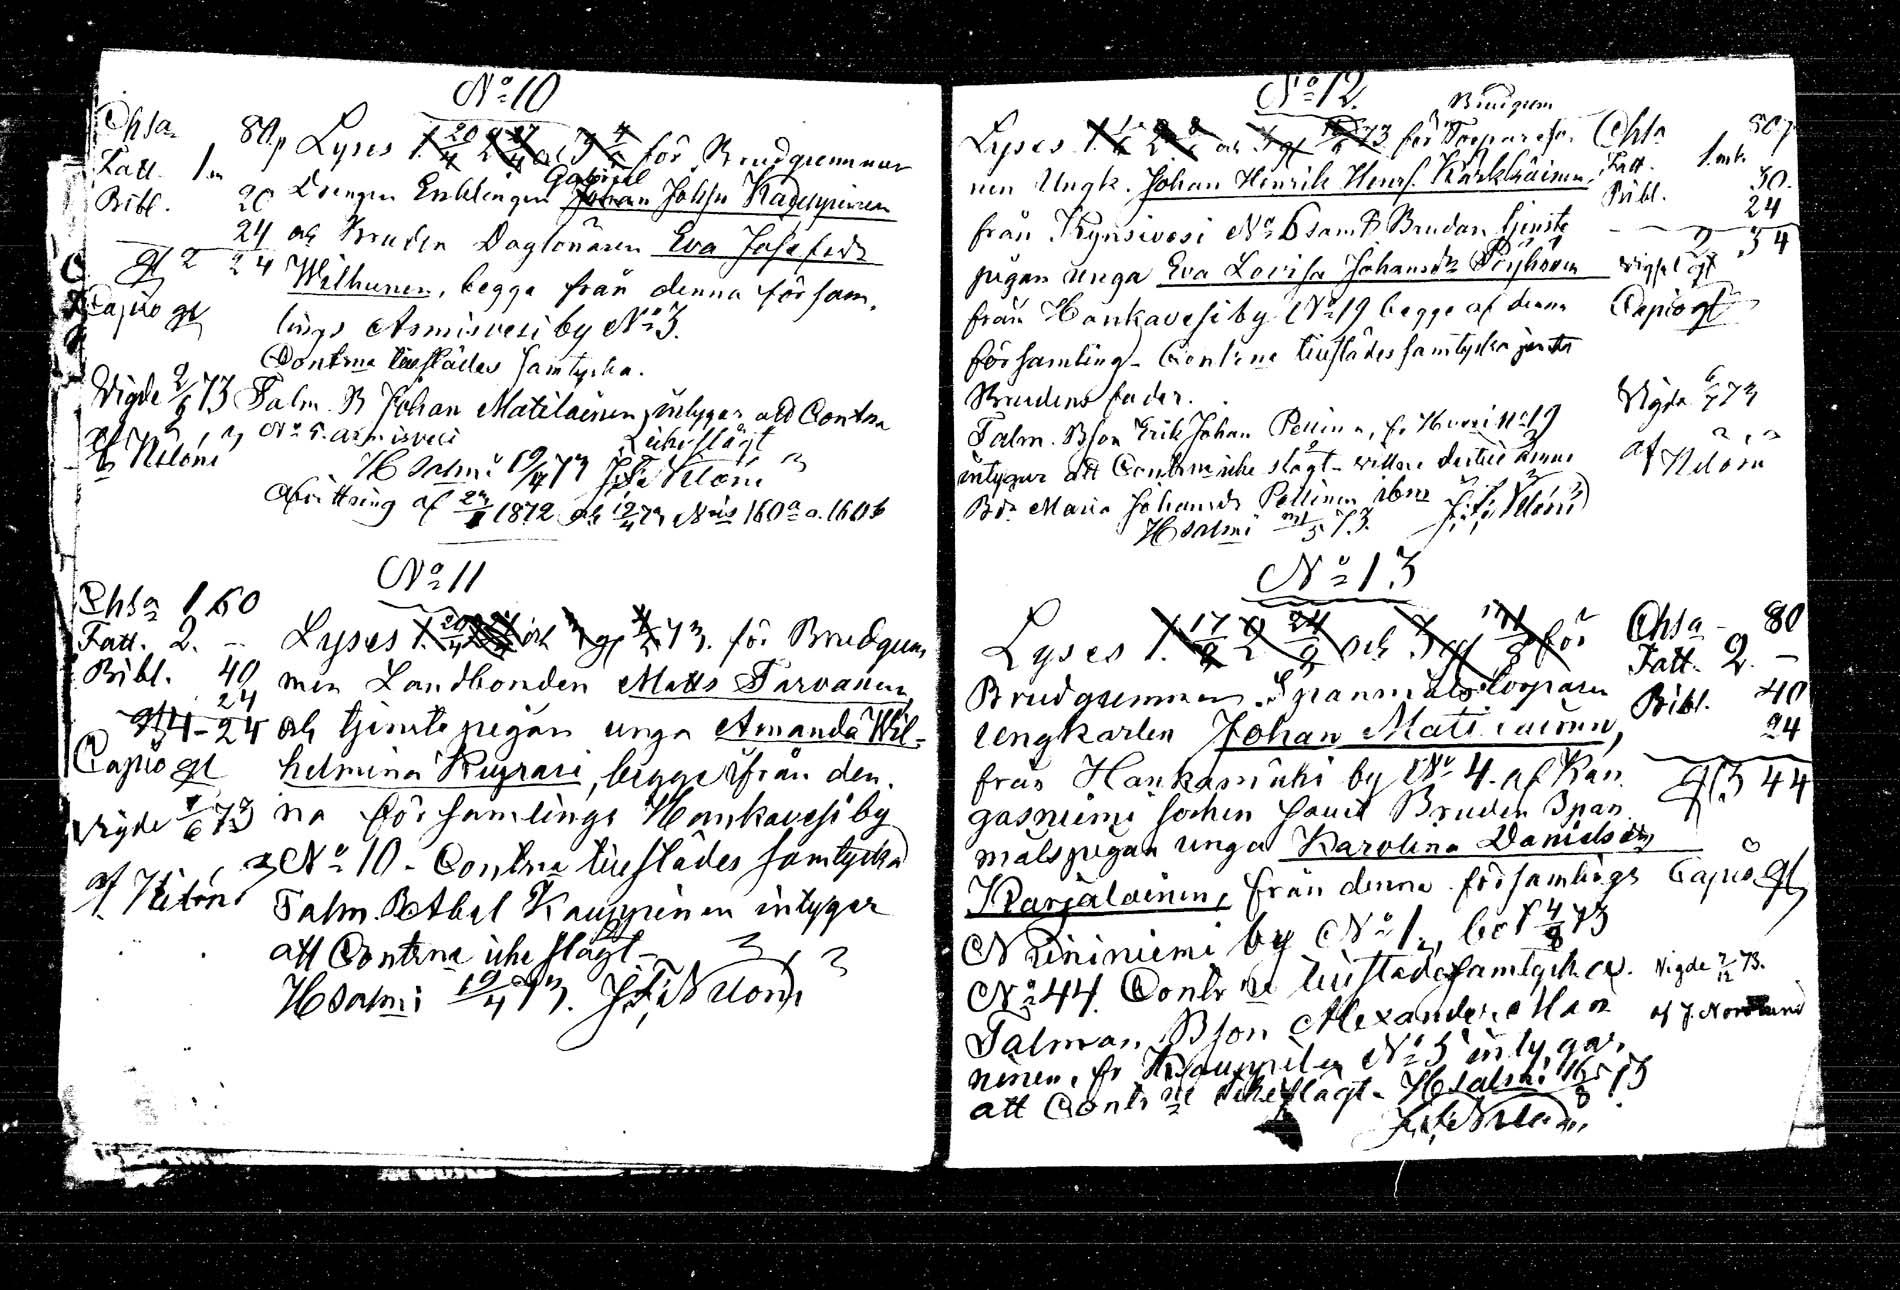 No 10
Chsa 80 p
Fatt. 1 m
Bibl. 20
24
gl 2 24
Capio gl
Vigde 2/6 73
af Nilóni
Lyses 1. 20/4 2 27/4 och 3 4/5 för Brudgummen
Drengen Enklingen Gabriel Johan Johsn
och Bruden Eva Josefsdr
Wilhunen, begge från denna försam.
lings Asmisvesi by No 3.
Contrna tillstädes samtycka.
Talm. B Johan Matilainen, intygar att Contra
No 5. Asmisvesi icke slägt
Hsalmi 19/4 73 J. F. Nilóni
af 1872 och 12/4 73 Nris 160 a o. 160 b
No 11
Chsa 1 60
Fatt. 2. –
Bibl. 40
24
gl 4 - 24
Capio gl
Vigde 1/6 73
af Nilóni
Lyses 1. 20/4 och 3 gl 73. för Brudgum
men Landbonden Matts Tarvanen,
och tjenstepigan unga Amanda Wil=
helmina Kuprari, begge ifrån den
na församlings Hankavesi by
No 10 - Contrna tillstädes samtycka
Talm. B Abel Kauppinen intygar
att Contrna icke slägt -
Hsalmi 19/4 73. J. F. Nilóni
No 12.
Lyses 1. 2 och 3 gl 73 för Brudgum
nen Ungk. Johan Henrik Henrs. Karkkainen,
från Kynsivesi No 6 samt Brudan tjenste
pigan unga Eva Lovisa Johansdr Pöyhönen
från Hankavesi by No 19 begge af denna
församling - Contrna tillstädes samtycka
Brudens fader.
Talm. Bson Erik Johan Pellinen, fr No 19
intygar att Contrne icke slägt -
Maria Johansdr Pellinen J. F. Nilóni
Hsalmi 73.
Chsa 80 p
Fatt. 1 mk
Bibl. 30.
24
2 34
Vigsel gl
Capio gl
Vigde 6/7 73
af Nilóni
No 13
Lyses 1. 17/8 2 24/8 och 3 gl 31/8 för
Brudgummen Spanmåls torparen
ungkarlen Johan Matilainen,
från Hankamäki by No 4. af Kan
gasniemi socken samt Bruden Span
målspigan unga Karolina Danielsdr
Karjalainen, från denna församlings
Niininiemi by No 1, bet 4/8 73
No 44. Contrne tillstädes samtycka.
Talman. Bson Alexander Man
ninen, fr Kauppila No 5 intygar,
att Contrne icke slägt - Hsalmi 16/8 73
J. F. Nilóni
Chsa - 80
Fatt. 2. –
Bibl. 40
24
gl 3 44
Capio gl
Vigde 7/12 73.
af J. Nordlund